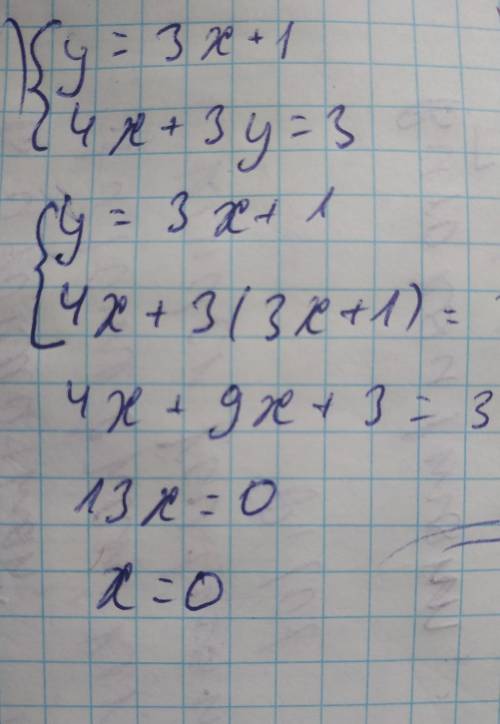 {y = 3x + 1
4x + 3y = 3
{y = 3x + 1
4x + 3(3x + 1) =
4x + 9x + 3 = 3
13x = 0
x = 0